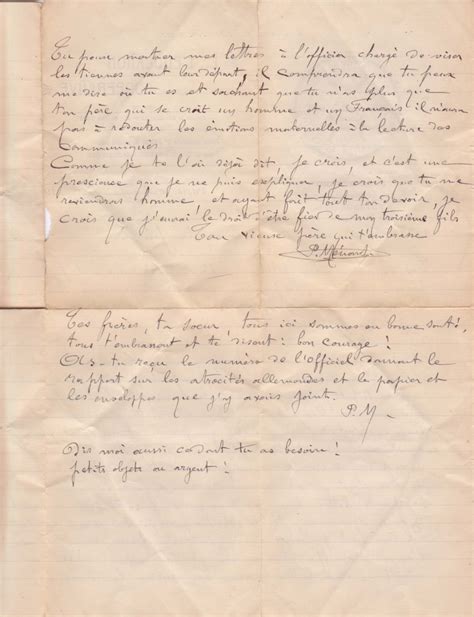 Tu peux montrer mes lettres à l'officier chargé de viser
les tiennes avant leur départ, il comprendra que tu peux
me dire où tu es et sachant que tu n'as plus que
ton père qui se croit un homme et un Français il n'aura
pas à redouter les émotions maternelles à la lecture des
Communiqués
Comme je te l'ai déjà dit, je crois, et c'est une
prescience que je ne puis expliquer, je crois que tu me
reviendras homme, et ayant fait tout ton devoir, je
crois que j'aurai le droit d'être fier de mon troisième fils
Ton vieux père qui t'embrasse
P.
Tes frères, ta soeur, tous ici sommes en bonne santé,
tous t'embrassent et te disent : bon courage !
As-tu reçu le numéro de l'Officiel donnant le
rapport sur les atrocités allemandes et le papier et
les enveloppes que j'y avais joint.
P. M
Dis moi aussi ce dont tu as besoin !
petits objets ou argent !